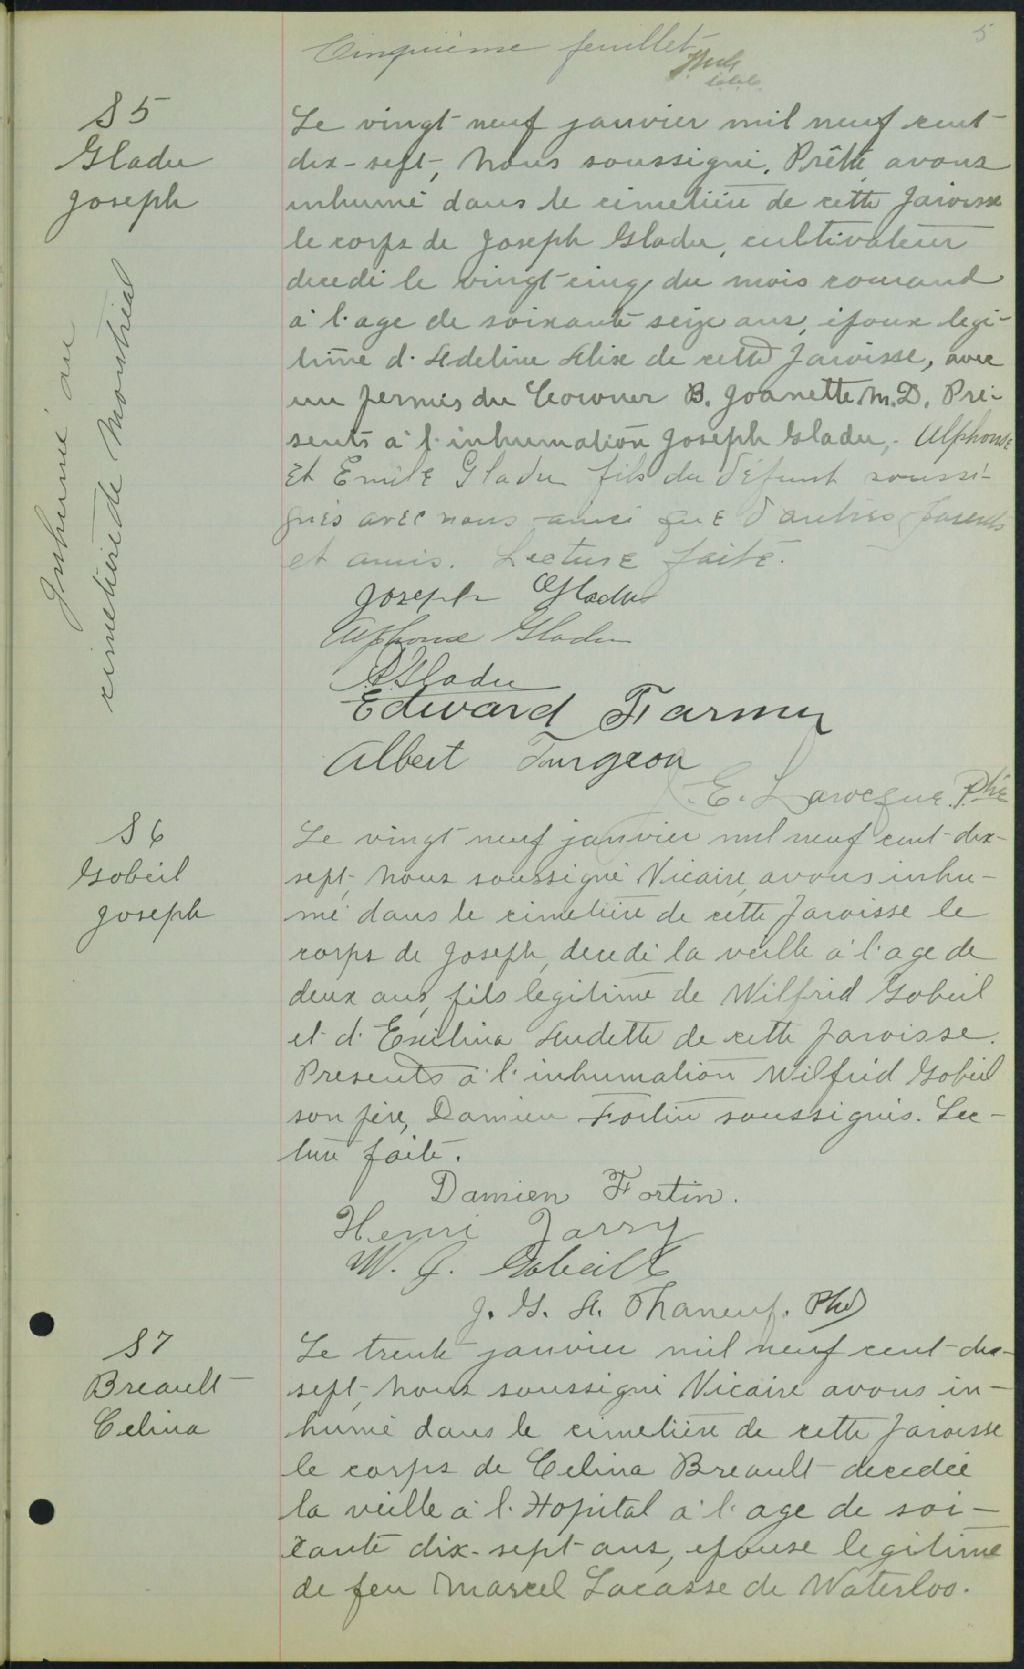 Cinquième feuillet
5
S 5
Gladu
Joseph
Inhumé au
cimetière de Montréal
Le vingt neuf janvier mil neuf cent
dix-sept, Nous soussigné, Prêtre avons
inhumé dans le cimetière de cette paroisse
le corps de Joseph Gladu, cultivateur
decedé le vingt cinq du mois courand
à l'age de soixante seize ans, époux legi-
time d'Adeline Alix de cette paroisse, avec
un permis du Corowner B. Joanette M.D. Pré-
sents à l'inhumation Joseph Gladu, Alphonse
Et Emile Gladu fils du défunt soussi-
gnés avec nous ainsi que d'autres parents
et amis. Lecture faite.
Joseph Gladu
Alphonse Gladu
A Gladu
Edward Farmer
Albert Turgeon
E. Larocque. Ptre
S 6
Gobeil
Joseph
Le vingt neuf janvier mil neuf cent dix-
sept, Nous soussigné Vicaire, avons inhu-
mé dans le cimetière de cette paroisse le
corps de Joseph, decedé la veille à l'age de
deux ans, fils légitime de Wilfrid Gobeil
et d' Audette de cette paroisse.
Presents à l'inhumation Wilfrid Gobeil
son père, Damien Fortin soussignés. Lec-
ture faite.
Damien Fortin.
Henri Jarry
W. J. Gobeille
J. G. A. Phaneuf. Ptre
S 7
Breault
Celina
Le trente janvier mil neuf cent dix-
sept, Nous soussigné Vicaire avons in-
humé dans le cimetière de cette paroisse
le corps de Celina Breault decedée
la veille à l'Hopital à l'age de soi-
xante dix-sept ans, epouse legitime
de feu Marcel Lacasse de Waterloo.